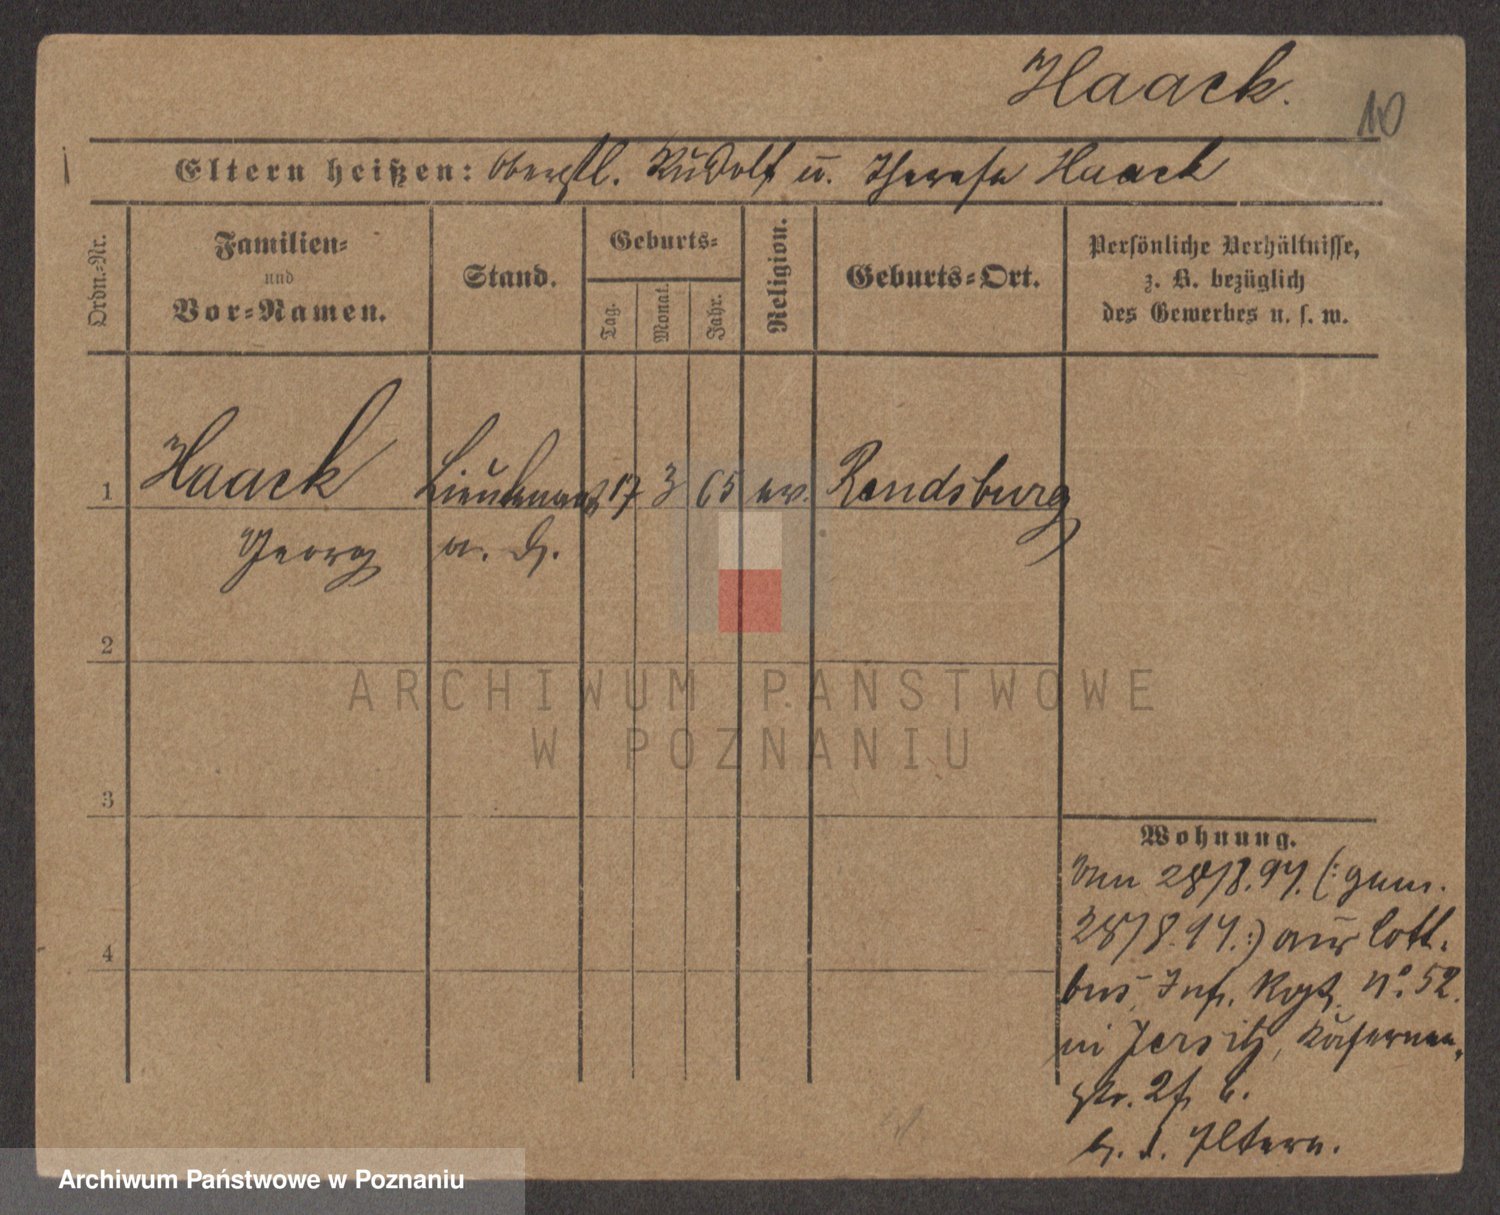 Haack.
10
Eltern heißen: Oberstl. Rudolf u. Therese Haack
Ordn.-Nr.
Familien-
und
Vor-Namen.
Stand.
Geburts-
Tag.
Monat.
Jahr.
Religion.
Geburts-Ort.
Persönliche Verhältnisse,
z. B. bezüglich
des Gewerbes u. s. w.
1 Haack Lieutenant 17 3 65 ev. Rendsburg
Georg a. D.
2
3
4
Wohnung.
28/8.94. (: gem.
28/8.94.:) aus Cott-
bus, Inf. Rgt. No. 52.
in Jersitz, Kasernen-
str. 2
b. d. Eltern.
ARCHIWUM PAŃSTWOWE
W POZNANIU
Archiwum Państwowe w Poznaniu